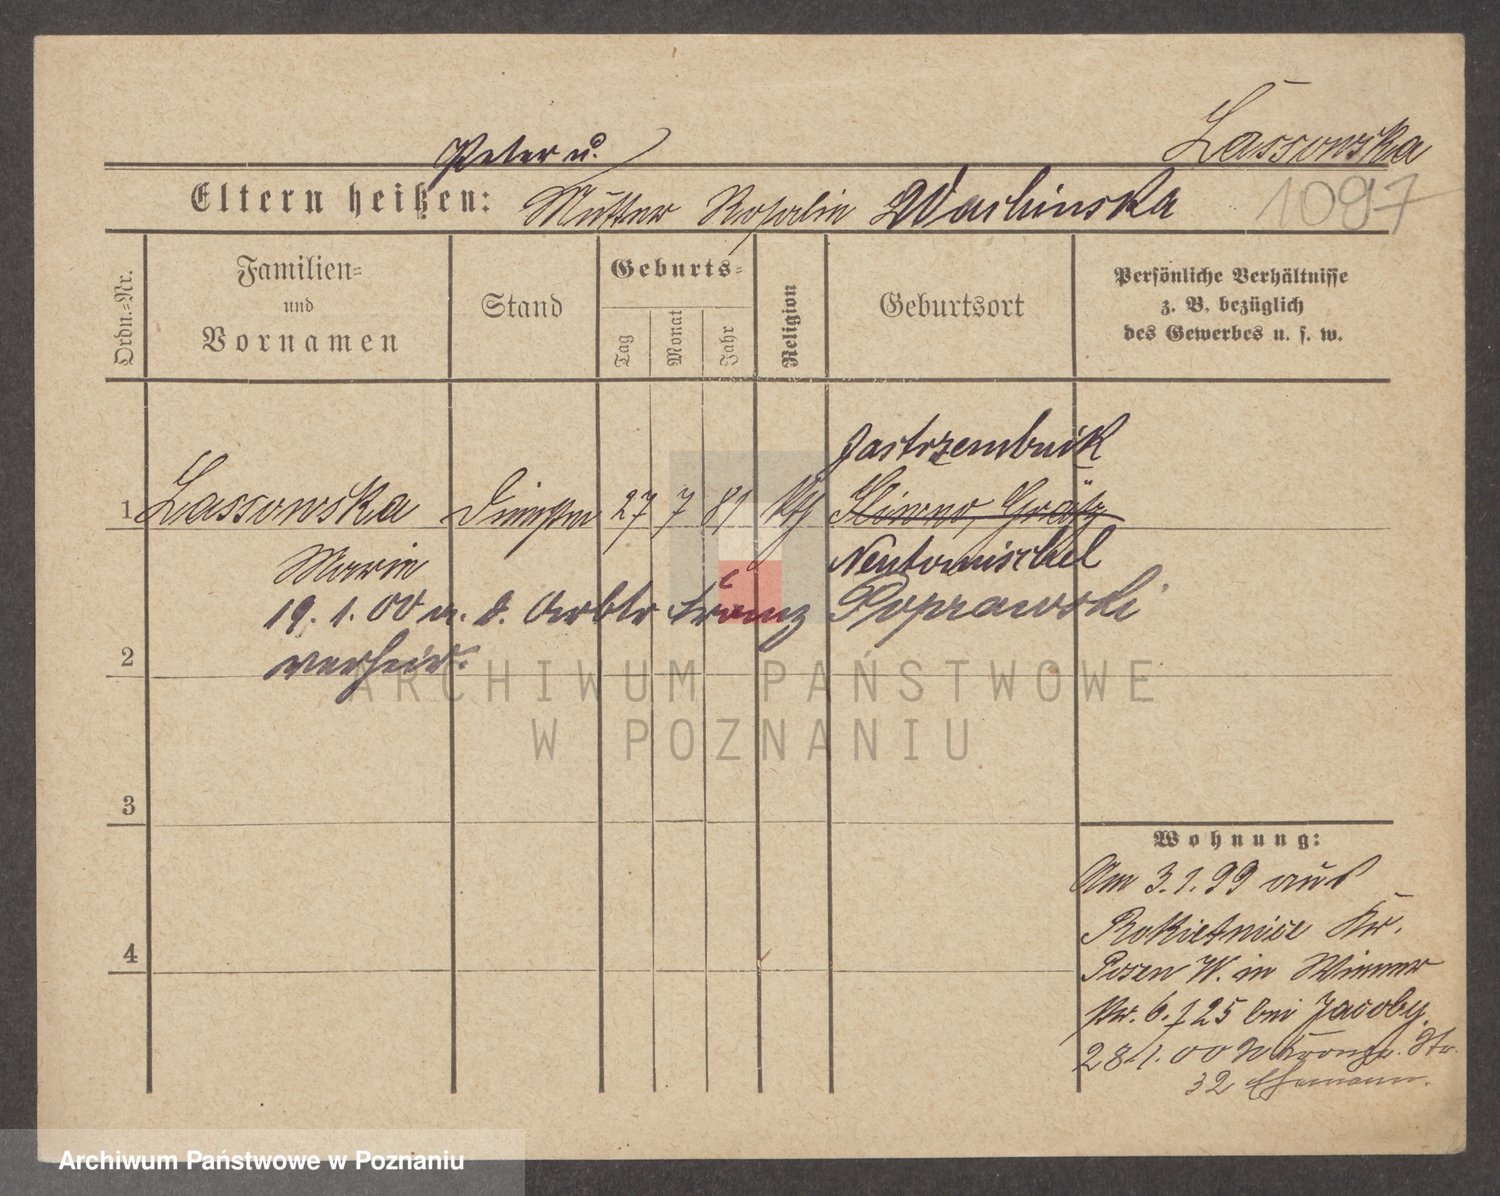 Lassowska
Peter u.
Eltern heißen: Mutter Rosalie Wachinska
1097
Ordn.-Nr.
Familien-
und
Vornamen
Stand
Geburts-
Tag
Monat
Jahr
Religion
Geburtsort
Persönliche Verhältnisse
z. B. bezüglich
des Gewerbes u. s. w.
Jastrzembnik
1 Lassowska 27 7 81 kth Grätz
Marie Neutomischel
19. 1. 00 m. d. Arbtr Franz Poprawski
2 verheir.
3
4
Wohnung:
Am 3.1.99 aus
Rokietnice Kr.
Posen W. in Wiener
Str. 6. I 25 bei Jacoby.
28/1. 00 N Kronpr. Str.
32 Ehemann.
ARCHIWUM PAŃSTWOWE
W POZNANIU
Archiwum Państwowe w Poznaniu